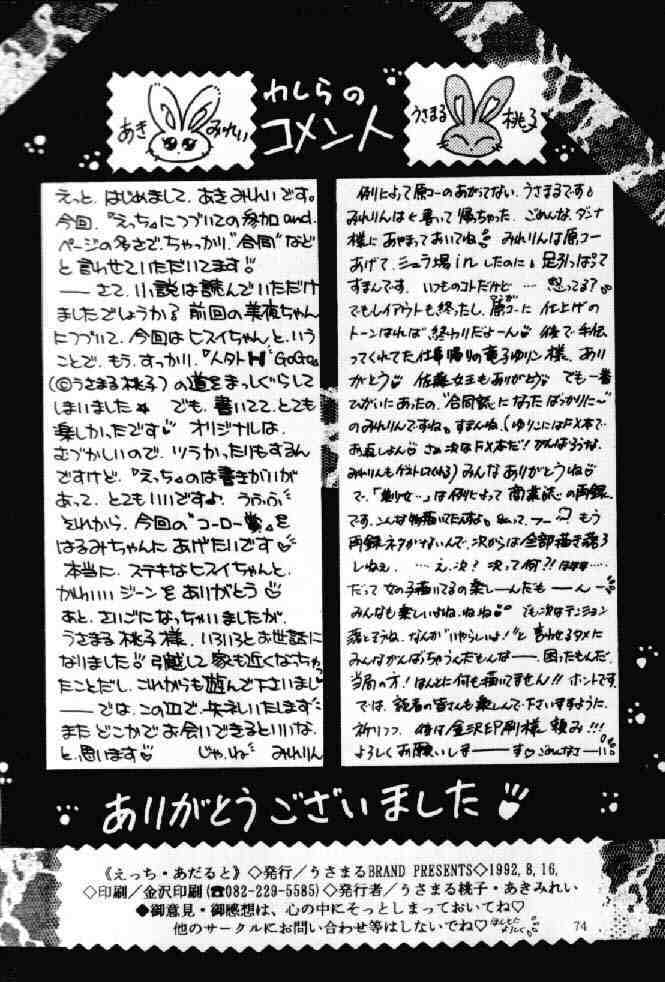 わしらの
コメント
あき みれい
うさまる 桃子
えっと、はじめまして、あきみれいです。
今回、『えっち』につづいての参加and.
ページの多さで、ちゃっかり、"合同"などと
と言わせていただいてます!
――さて、小説は読んでいただけ
ましたでしょうか? 前回の美夜ちゃん
につづいて、今回はヒスイちゃん、という
ことで、もう、すっかり、『人タトH GoGo』
(©うさまる桃子)の道をまっしぐらして
しまいました★ でも、書いてて、とても
楽しかったです♡ オリジナルは、
むづかしいので、ツラかったりもするん
ですけど、『えっち』のは書きがいが
あって、とてもいいです♪ うふふ
それから、今回の"コーロー
はるみちゃんにあげたいです♡
本当に、ステキなヒスイちゃんと、
かわいいジーンをありがとう♡
あと、さいごになっちゃいましたが、
うさまる桃子様、いろいろとお世話に
なりました 引越して家も近くなっちゃっ
たことだし、これからも遊んで下さいまし
――では、この辺で、失礼いたします
またどこかでお会いできるといいな、
と、思います♡ じゃ、ね みれりん
例によって原コーのあがってない、うさまるです
みれりんは 書って帰ちゃった、ごめんな、ダンナ
様にあやまっておいてね みれりんは原コー
あげて、シュラ場inしたのに 足引っぱって
すまんです、いつものコトだけど… 怒ってる?
でもレイアウトも終ったし、原コーに仕上げの
トーンはれば、終わりだよーん 後で手伝
ってくれてた仕事帰りの竜子ゆリン様、あり
がとう 佐藤女王もありがとう でも一番
ひがいにあったの、"合同誌"になったばっかりに〜
のみれりんですね。すまんね、(ゆりこにはFX本で
お返しよん さぁ次はFX本だ! がんばろうな、
みれりんもゲストしてくれる) みんなありがとうね
で、「 …」は例によって商業誌の再録
です、こんな物描いてたんすよ もう
再録ネタがないんで、次からは全部描き
しねぇ、 …え、次? 次って何??
だって女の子描いてるの楽しーんだもーん
みんなも楽しいよね、ねね でも次はテンション
落とそうね、なんか"いやらしいよ!"と言わせるタメに
みんながんばっちゃうんだもんなー 困ったもんだ、
当局の方! ほんとに何も描いてません!! ホントです
では、読者の皆さんも楽しんで下さいますように、
祈りつつ、 金沢印刷様 頼み!!!
よろしくお願いしまーーーす♡ ごめんなさーい
ありがとうございました
《えっち・あだると》◇発行/うさまるBRAND PRESENTS◇1992,8,16,
◇印刷/金沢印刷(☎082-229-5585)◇発行者/うさまる桃子・あきみれい
●御意見・御感想は、心の中にそっとしまっておいてね♡
他のサークルにお問い合わせ等はしないでね♡
74